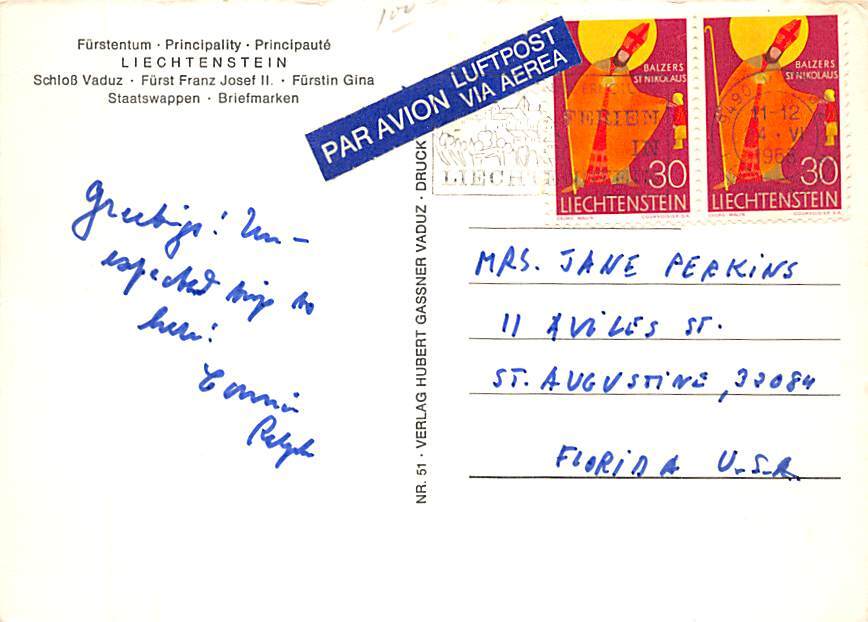 100
Fürstentum · Principality · Principauté
LIECHTENSTEIN
Schloß Vaduz · Fürst Franz Josef II. · Fürstin Gina
Staatswappen · Briefmarken
PAR AVION LUFTPOST
VIA AEREA
BALZERS
ST NIKOLAUS
30
LIECHTENSTEIN
COURVOISIER S.A.
BALZERS
ST NIKOLAUS
30
LIECHTENSTEIN
COURVOISIER S.A.
FERIEN
IN
LIECH
9490
11-12
4·VI
1968
Greetings! Un-
expected trip to
here!
Connie
Ralph
NR. 51 · VERLAG HUBERT GASSNER VADUZ · DRUCK
MRS. JANE PERKINS
11 AVILES ST.
ST. AUGUSTINE, 32084
FLORIDA U.S.A.